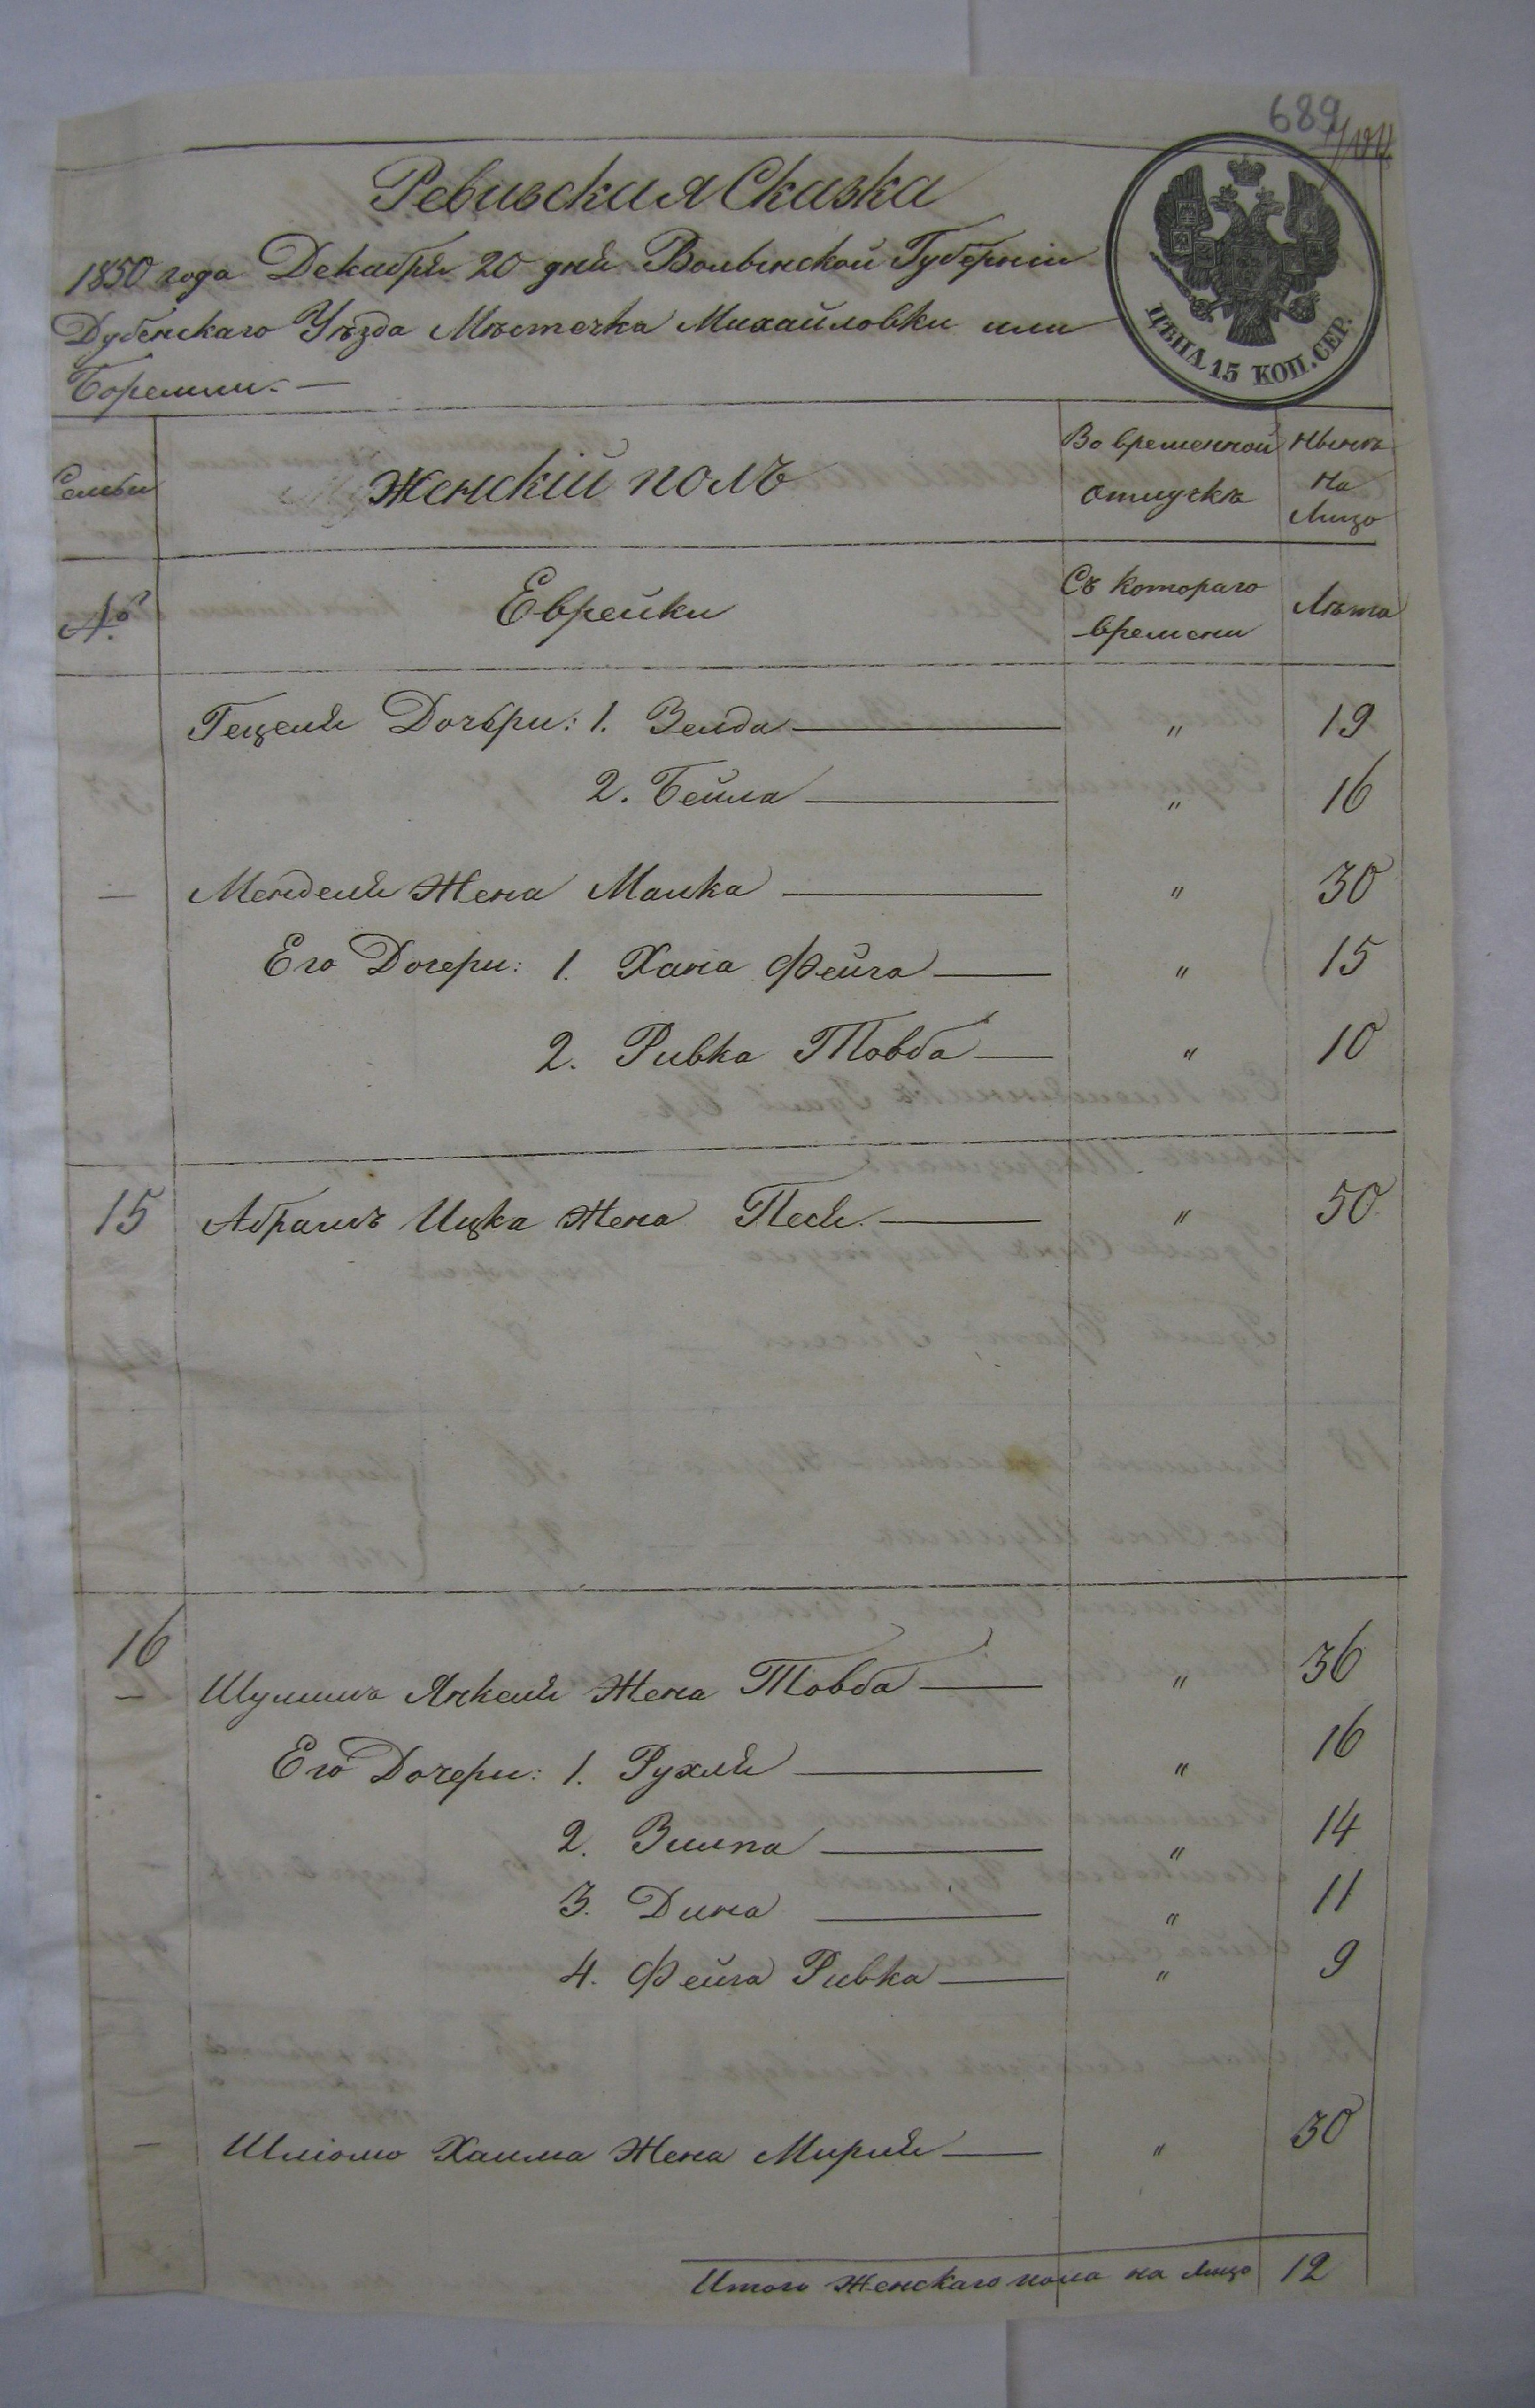 689
Ревизская Сказка
1850 года Декабря 20 дня Волынской Губерніи
Дубенскаго Уѣзда Мѣстечка Михайловки или
Боремли. —
ЦѢНА 15 КОП. СЕР.
Семьи Женскій полъ Во временной отлучкѣ Нынѣ на Лицо
№ Еврейки Съ котораго времени Лѣта
Гецеля Дочѣри: 1. Зелда — " 19
2. Бейла — " 16
— Менделя Жена Малка — " 30
Его Дочери: 1. Хана Фейга — " 15
2. Ривка Товба — " 10
15 Абрамъ Ицка Жена Песя. — " 50
16 — Шулима Янкеля Жена Товба — " 36
Его Дочери: 1. Рухля — " 16
2. Зилпа — " 14
3. Дина — " 11
4. Фейга Ривка — " 9
— Шліомо Хаима Жена Мирия — " 30
Итого Женскаго пола на лицо 12